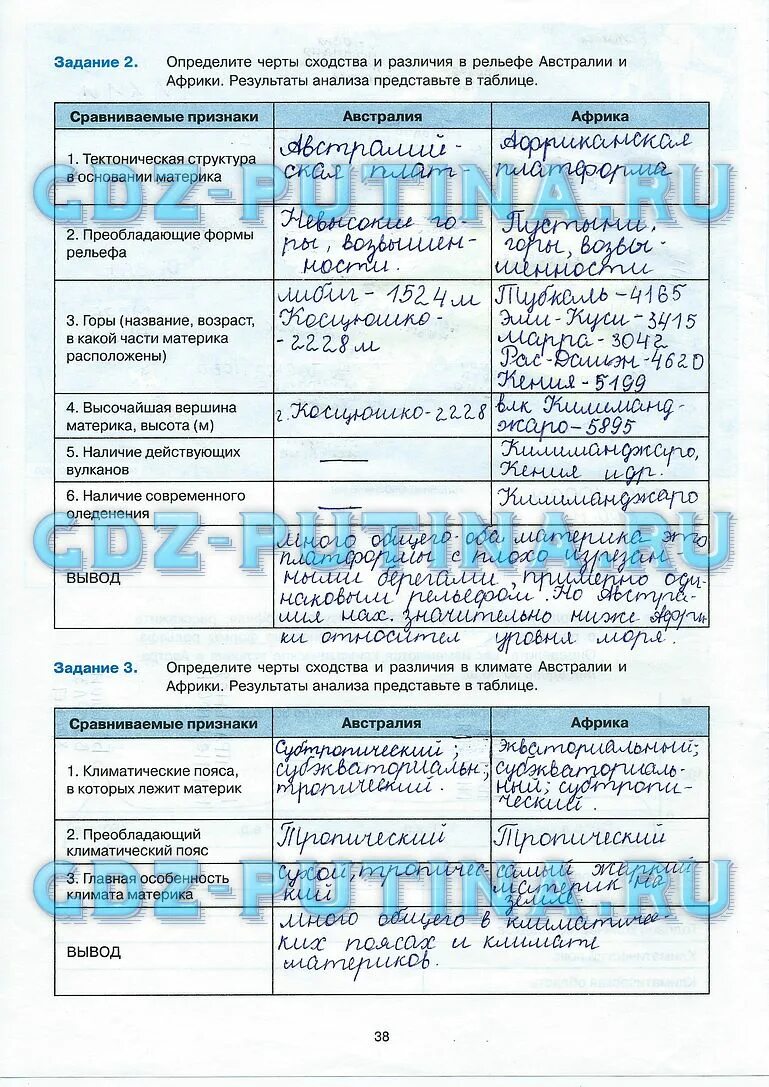 Задание 2. Определите черты сходства и различия в рельефе Австралии и
Африки. Результаты анализа представьте в таблице.
Сравниваемые признаки Австралия Африка
1. Тектоническая структура
в основании материка
Австралий-
ская плат-
Африканская
платформа
GDZ-PUTINA.RU
2. Преобладающие формы
рельефа
Невысокие го-
ры, возвышен-
ности.
Пустыни,
горы, возвы-
шенности
3. Горы (название, возраст,
в какой части материка
расположены)
либиг - 1524 м
Косцюшко-
-2228 м
Тубкаль-4165
Эми-Куси-3415
Марра-3042
Рас-Дашэн-4620
Кения-5199
4. Высочайшая вершина
материка, высота (м)
г. Косцюшко-2228
влк Килиманд-
жаро-5895
5. Наличие действующих
вулканов
—
Килиманджаро,
Кения и др.
6. Наличие современного
оледенения
—
Килиманджаро
GDZ-PUTINA.RU
ВЫВОД
много общего-оба материка это
платформы с плохо изрезан-
ными берегами, примерно оди-
наковым рельефом. Но Австра-
лия нах. значительно ниже Афри-
ки относител уровня моря.
Задание 3. Определите черты сходства и различия в климате Австралии и
Африки. Результаты анализа представьте в таблице.
Сравниваемые признаки Австралия Африка
1. Климатические пояса,
в которых лежит материк
Субтропический;
субэкваториальн;
тропический.
экваториальный;
субэкваториаль-
ный; субтропи-
ческий.
2. Преобладающий
климатический пояс
Тропический
Тропический
3. Главная особенность
климата материка
сухой, тропичес-
кий
самый жаркий
материк на
земле
GDZ-PUTINA.RU
ВЫВОД
много общего в климатичес-
ких поясах и климате
материков.
Климатическая область
38